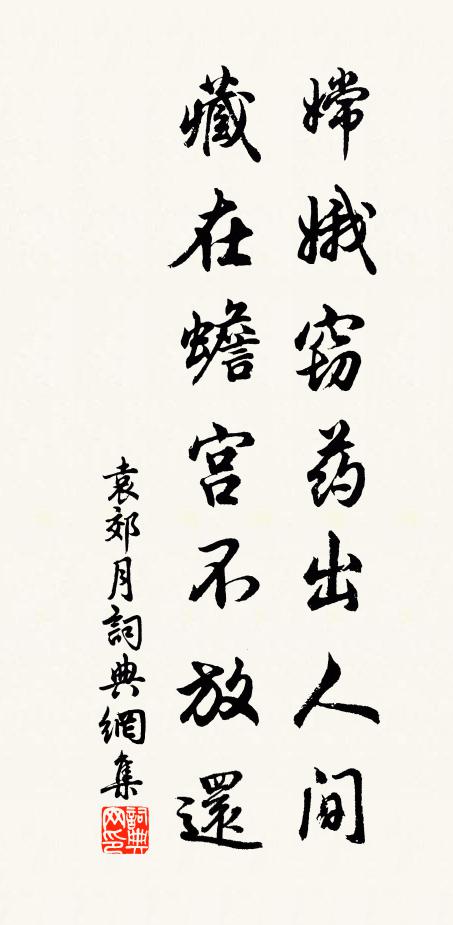 嫦娥窃药出人间
藏在蟾宫不放還
袁郊月詞典網集
詞典网印